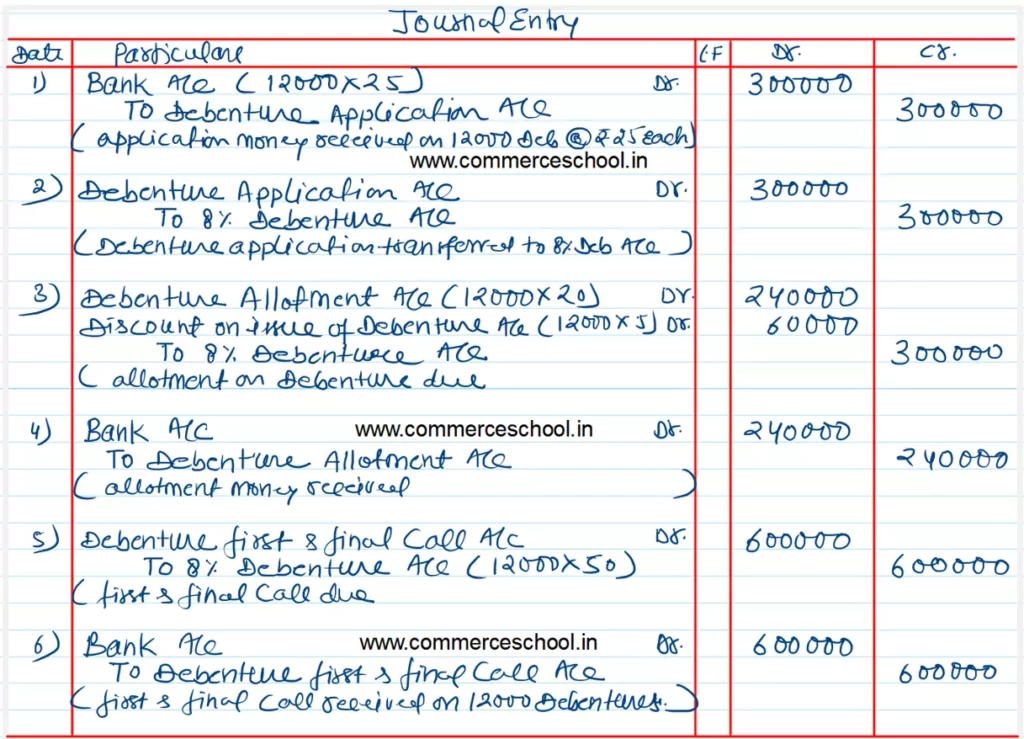 Journal Entry
Date Particulars LF Dr. Cr.
1) Bank A/c (12000×25) Dr. 300000
To Debenture Application A/c 300000
(application money received on 12000 Deb @ ₹25 Each)
www.commerceschool.in
2) Debenture Application A/c Dr. 300000
To 8% Debenture A/c 300000
(Debenture application transferred to 8% Deb A/c)
3) Debenture Allotment A/c (12000×20) Dr. 240000
Discount on issue of Debenture A/c (12000×5) Dr. 60000
To 8% Debenture A/c 300000
(allotment on Debenture due
4) Bank A/C www.commerceschool.in Dr. 240000
To Debenture Allotment A/c 240000
(allotment money received)
5) Debenture first & final Call A/c Dr. 600000
To 8% Debenture A/c (12000×50) 600000
(first & final Call due
6) Bank A/c www.commerceschool.in Dr. 600000
To Debenture first & final Call A/c 600000
(first & final Call received on 12000 Debentures.)